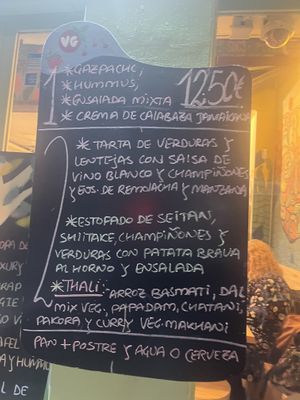 VG
1
*GAZPACHO,
*HUMMUS,
*ENSALADA MIXTA
*CREMA DE CALABAZA JAMAICANA
12,50€
2
*TARTA DE VERDURAS Y
LENTEJAS CON SALSA DE
VINO BLANCO Y CHAMPIÑONES
Y ENS. DE REMOLACHA Y MANZANA
*ESTOFADO DE SEITAN,
SHIITAKE, CHAMPIÑONES Y
VERDURAS CON PATATA BRAVA
AL HORNO Y ENSALADA
*THALI: ARROZ BASMATI, DAL
MIX VEG, PAPADAM, CHATANI,
PAKORA Y CURRY VEG. MAKHANI
PAN + POSTRE Y AGUA O CERVEZA